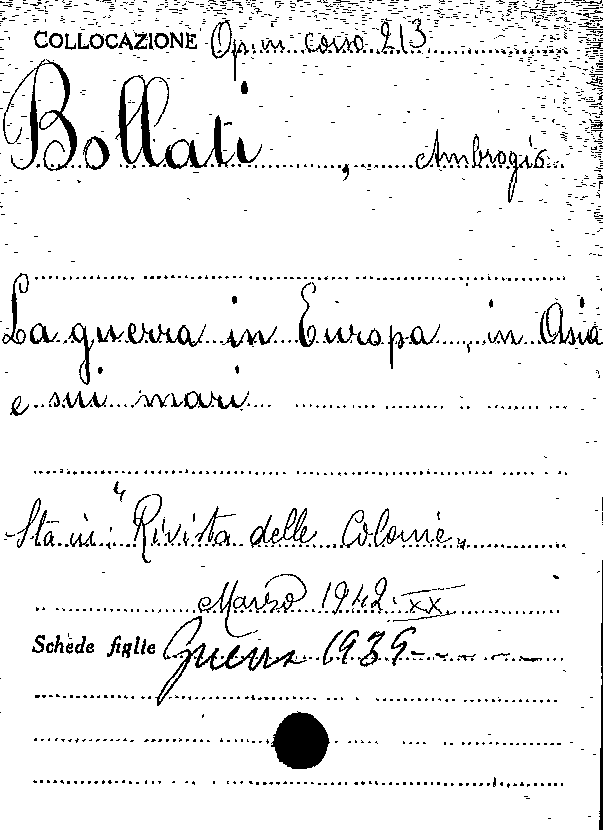 COLLOCAZIONE Op. in corso 213
Bollati, Ambrogio
La guerra in Europa, in Asia
e sui mari
Sta in: "Rivista delle Colonie"
Marzo 1942-XX
Schede figlie Guerra 1939-----